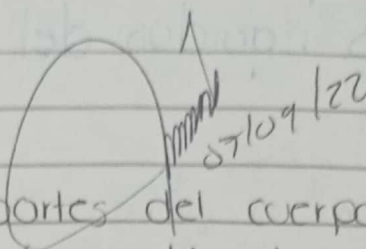 07/09/22
partes del cuerpo